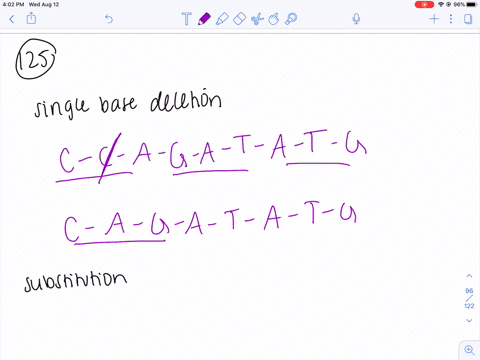 4:02 PM Wed Aug 12
96%
125
single base deletion
C-C-A-G-A-T-A-T-G
C-A-G-A-T-A-T-G
substitution
96
/
122